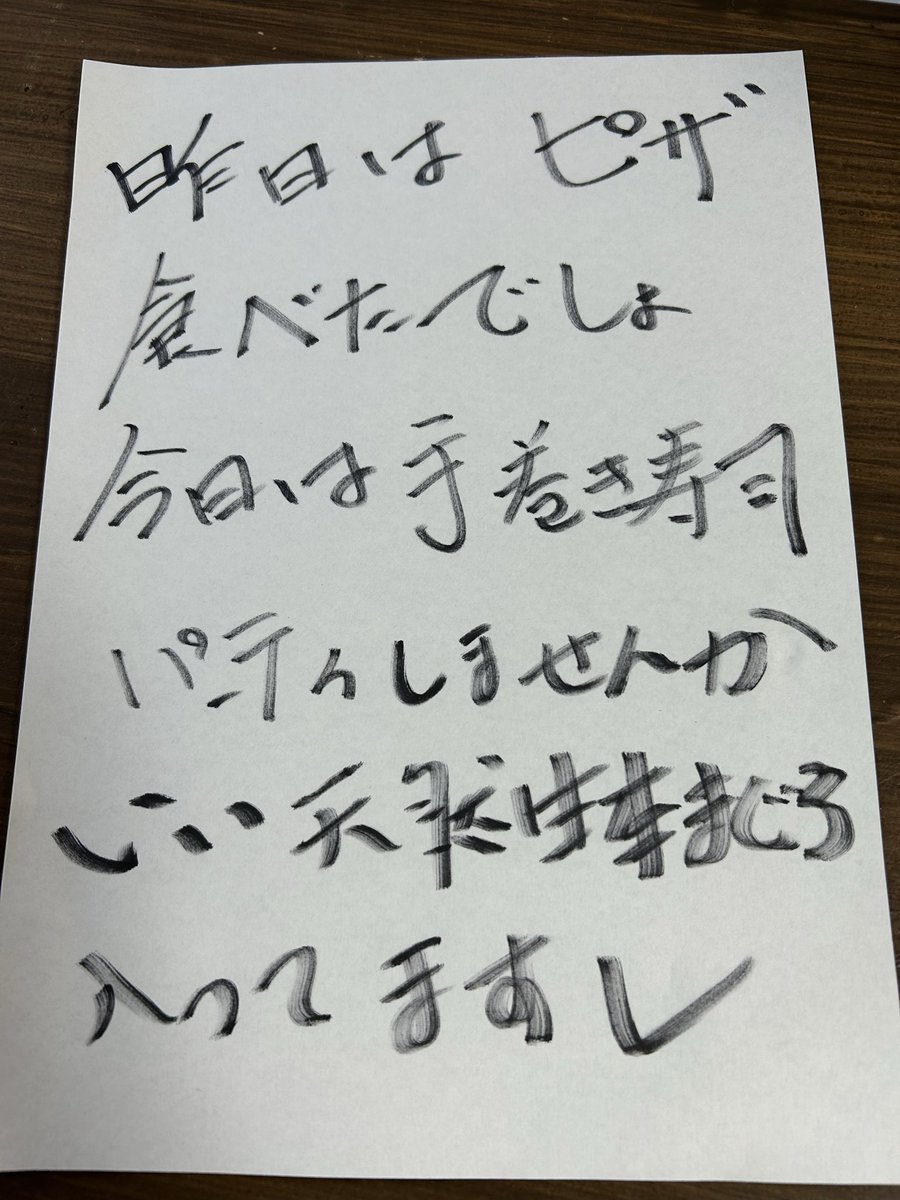 昨日はピザ
食べたでしょ
今日は手巻き寿司
パーティしませんか
いい天然生本まぐろ
入ってますし